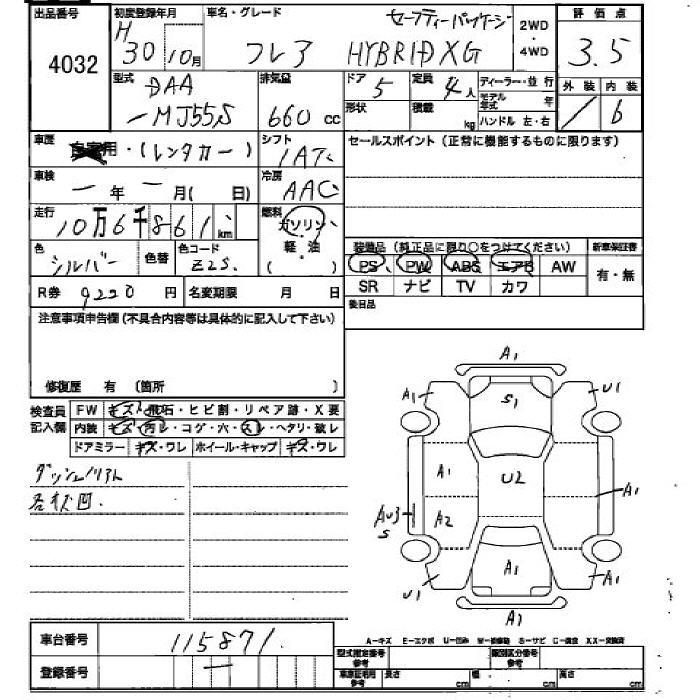 出品番号 4032
初度登録年月 H 30年 10月
車名・グレード フレア セーフティーパッケージ HYBRID XG
2WD ・ 4WD
評価点 3.5
外装 内装 6
型式 DAA -MJ55S
排気量 660 cc
ドア 5
定員 4人
ディーラー・並行
形状
積載 kg
モデル年式 年
ハンドル 左・右
車歴 自家用・(レンタカー)
シフト IAT
セールスポイント(正常に機能するものに限ります)
車検 ー年ー月(日)
冷房 AAC
走行 10万6千861 km
燃料 ガソリン・軽油・( )
色 シルバー
色替
色コード Z2S.
装備品(純正品に限り○をつけてください)
新車保証書
PS PW ABS エアB AW
有・無
SR ナビ TV カワ
R券 9220円
名変期限 月 日
後日品
注意事項申告欄(不具合内容等は具体的に記入して下さい)
修復歴 有 (箇所 )
検査員記入欄
FW キズ・飛石・ヒビ割・リペア跡・X要
内装 キズ・汚レ・コゲ・穴・スレ・ヘタリ・破レ
ドアミラー キズ・ワレ ホイール・キャップ キズ・ワレ
A1
A1
S1
U1
A1
U2
A1
AU3
S
A2
U1
A1
A1
A1
車台番号 115871
登録番号 ー
A-キズ E-エクボ U-凹み S-サビ C-腐食 XX-交換済
型式指定番号 参考
類別区分番号 参考
車庫証明用 参考 長さ cm 幅 cm 高さ cm